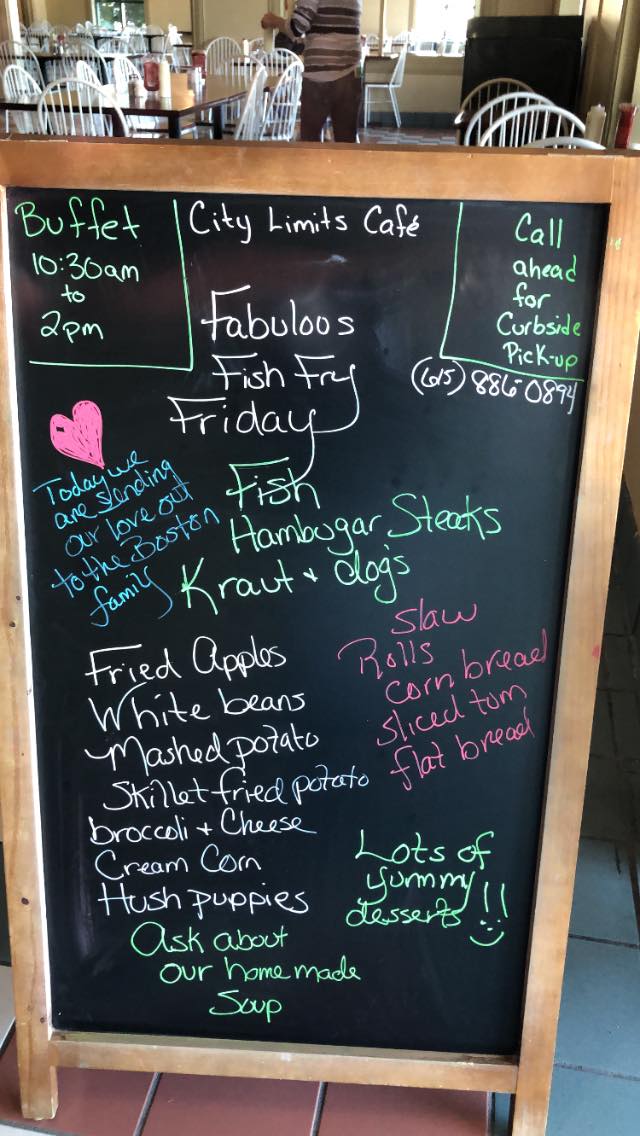 Buffet
10:30am
to
2pm
City Limits Café
Call
ahead
for
Curbside
Pick-up
(615) 886-0894
Fabuloos
Fish Fry
Friday
Today we
are sending
our love out
to the Boston
family
Fish
Hambugar Steaks
Kraut + dogs
Slaw
Rolls
corn bread
sliced tom
flat bread
Fried Apples
White beans
Mashed potato
Skillet fried potato
broccoli + Cheese
Cream Corn
Hush puppies
Lots of
yummy
desserts !!
Ask about
our home made
Soup